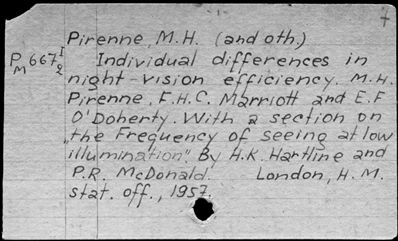 7
Pirenne, M.H. (and oth.)
P M 667 1/2 Individual differences in
night-vision efficiency. M.H.
Pirenne, F.H.C. Marriott and E.F
O'Doherty. With a section on
"the Frequency of seeing at low
illumination". By H.K. Hartline and
P.R. McDonald. London, H.M.
stat. off., 1957.